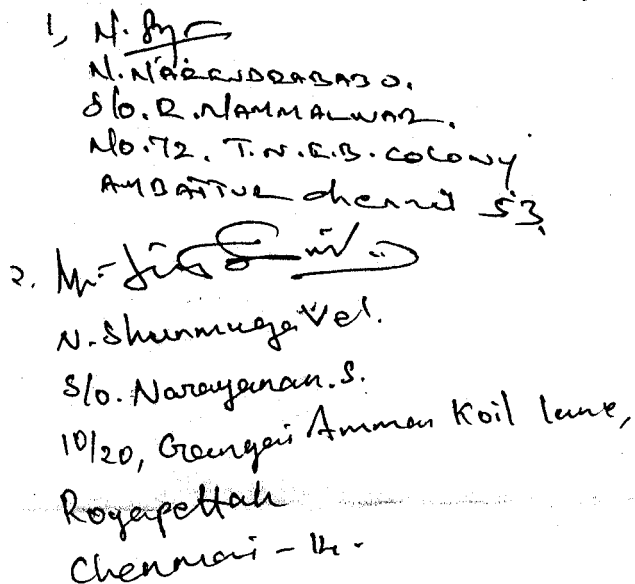 1,
N. NARENDRABABU.
S/o. R. NAMMALWAR.
No. 72. T.N.E.B. COLONY
AMBATTUR Chennai 53,
2.
N. Shunmuga Vel.
S/o. Narayanan. S.
10/20, Gangai Amman Koil lane,
Royapettah
Chennai - 14.